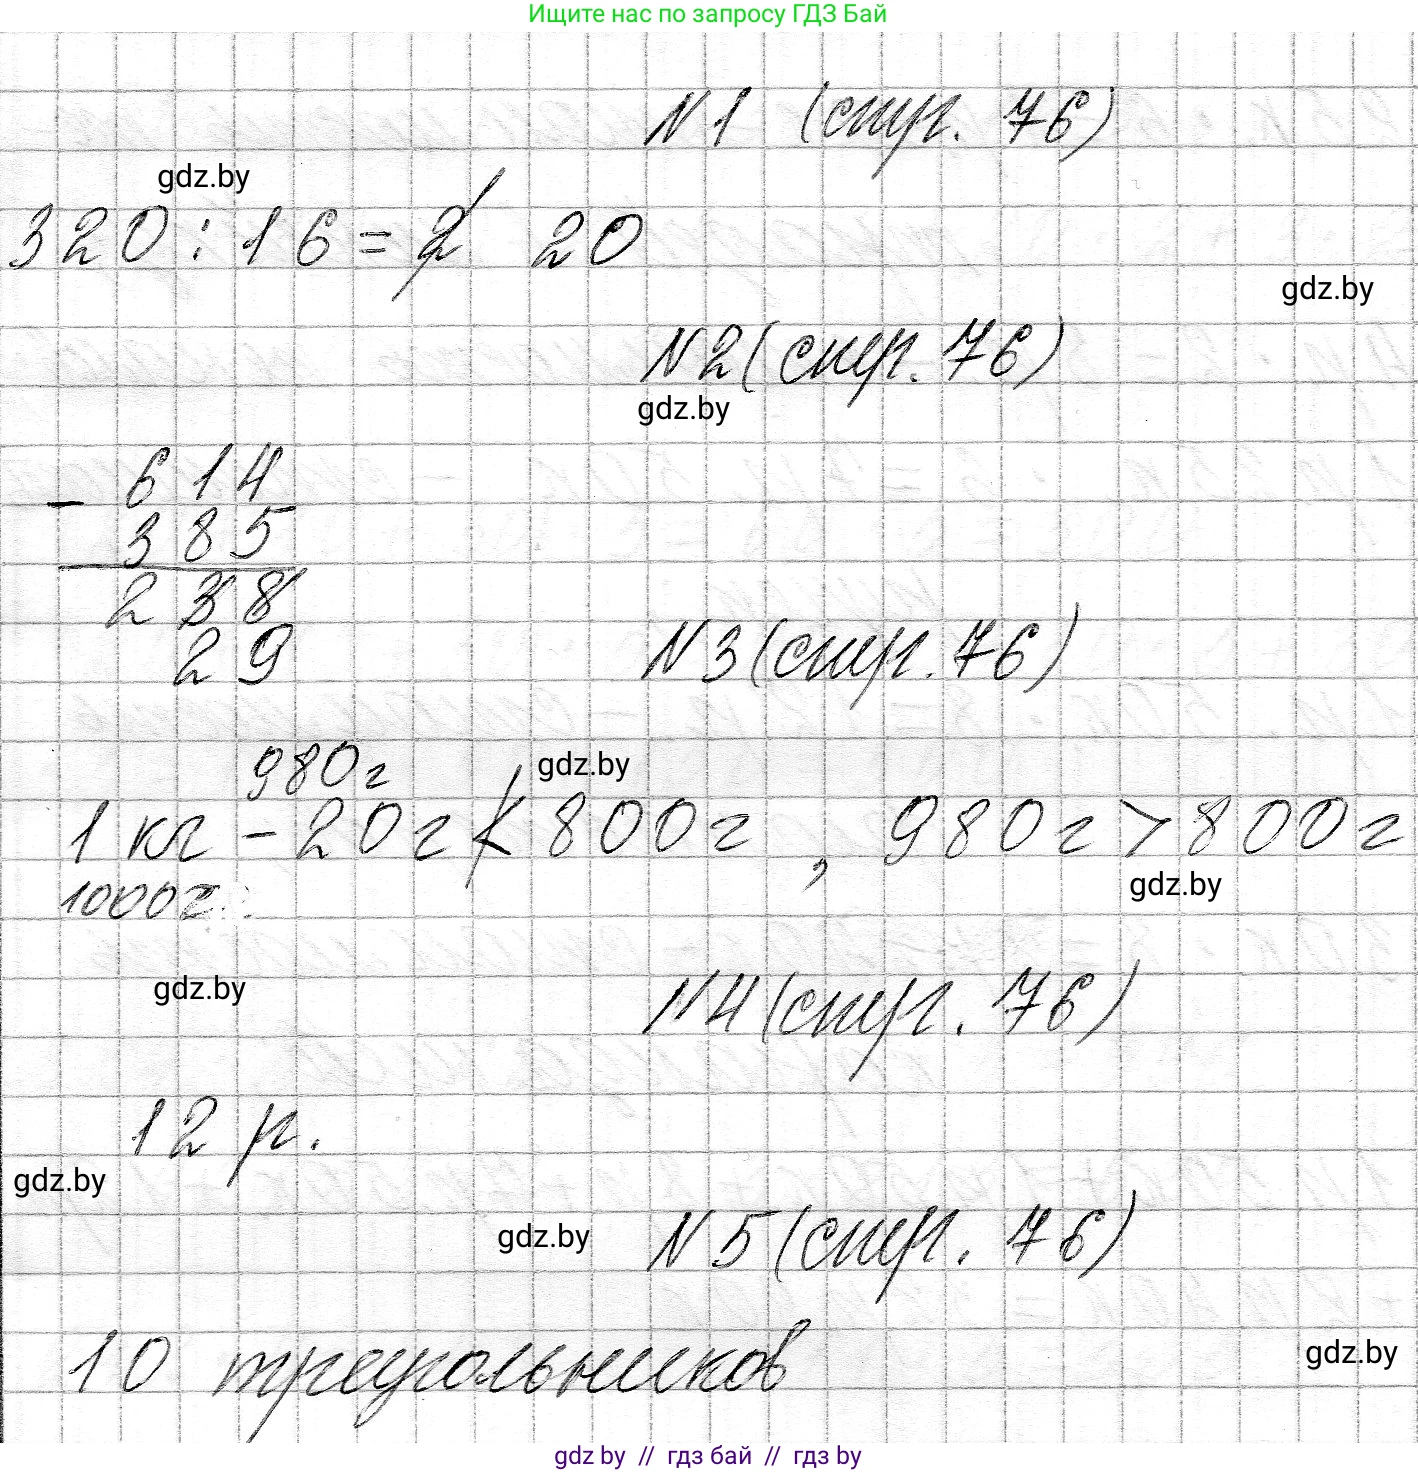 Ищите нас по запросу ГДЗ Бай
N1 (стр. 76)
gdz.by
320 : 16 = 2 20
gdz.by
N2 (стр. 76)
gdz.by
- 614
385
238
29
N3 (стр. 76)
980г
gdz.by
1 кг - 20г < 800г , 980г > 800г
1000г
gdz.by
gdz.by
N4 (стр. 76)
12 р.
gdz.by
gdz.by
N5 (стр. 76)
10 треугольников
gdz.by
gdz.by // гдз бай // гдз by